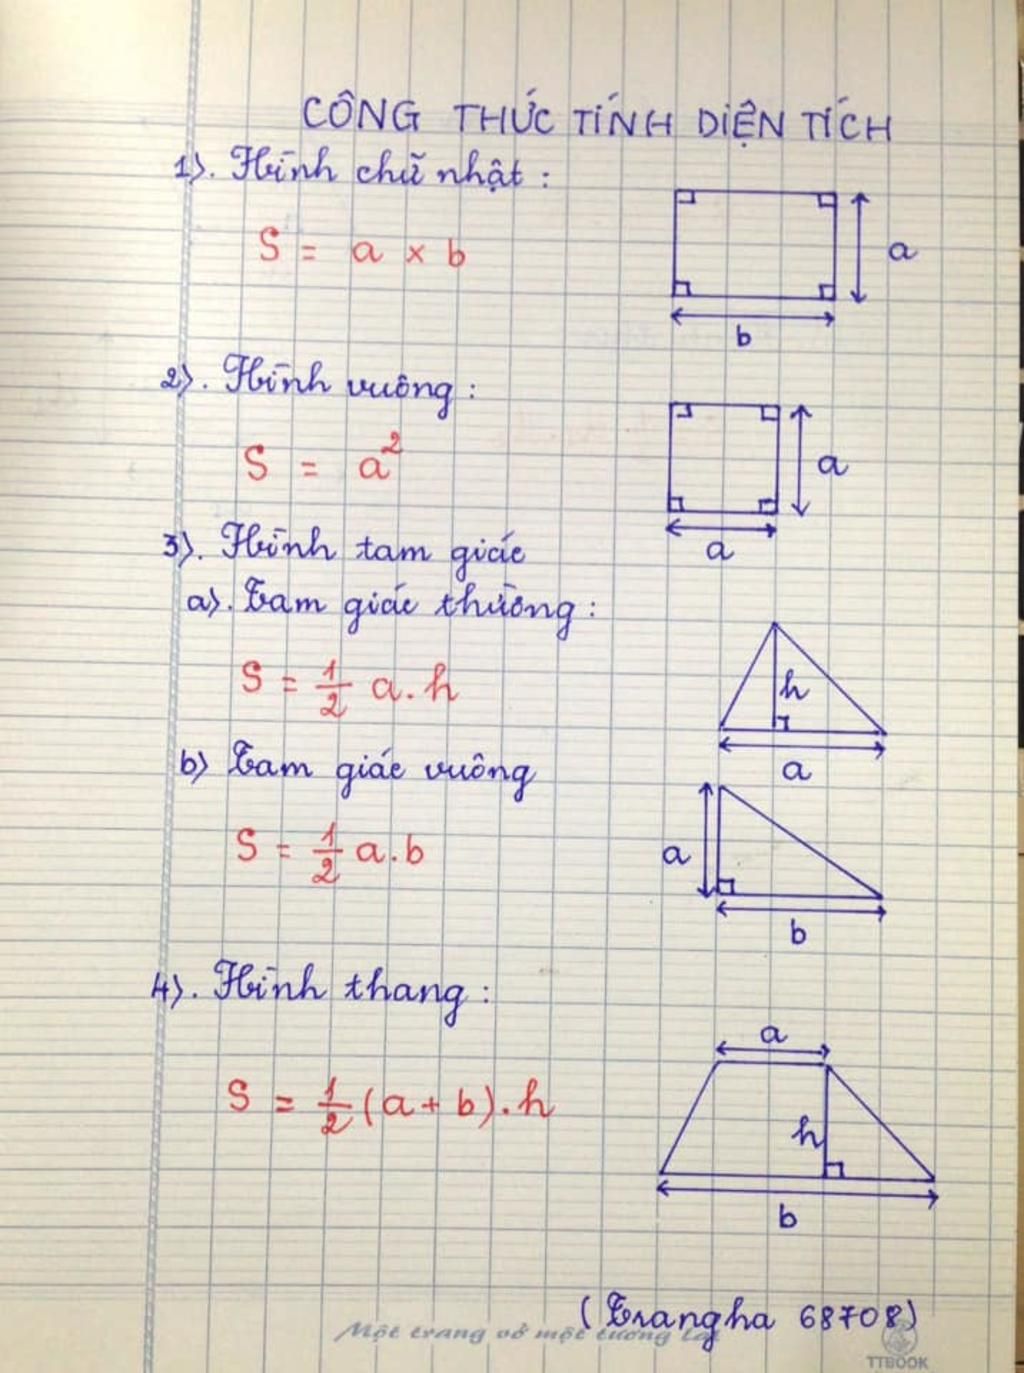 CÔNG THỨC TÍNH DIỆN TÍCH
1). Hình chữ nhật:
S = a × b
a
b
2). Hình vuông:
S = a²
a
a
3). Hình tam giác
a). Tam giác thường:
S = 1/2 a.h
h
a
b) Tam giác vuông
S = 1/2 a.b
a
b
4). Hình thang:
a
S = 1/2 (a + b).h
h
b
(Trangha 68708)
Một trang vở một tương lai
TTBOOK